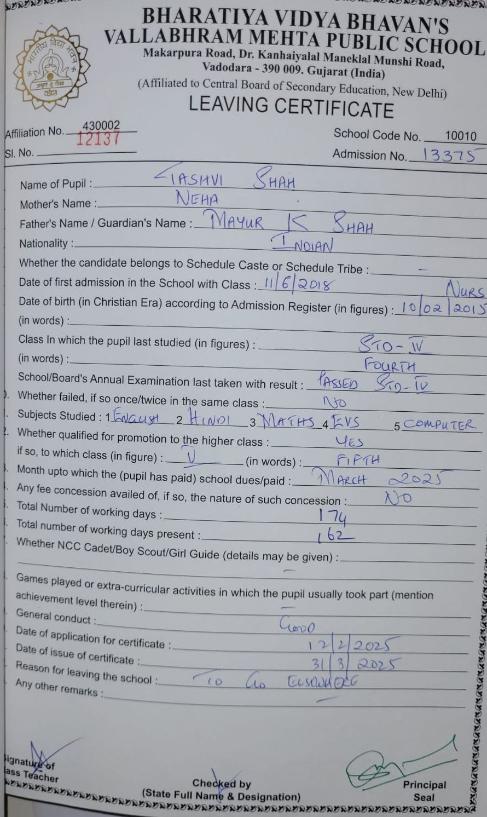 BHARATIYA VIDYA BHAVAN'S
VALLABHRAM MEHTA PUBLIC SCHOOL
Makarpura Road, Dr. Kanhaiyalal Maneklal Munshi Road,
Vadodara - 390 009. Gujarat (India)
(Affiliated to Central Board of Secondary Education, New Delhi)
LEAVING CERTIFICATE
Affiliation No. 430002 School Code No. 10010
Sl. No. 12137 Admission No. 13375
Name of Pupil : SHAH
Mother's Name : NEHA
Father's Name / Guardian's Name : MAYUR K SHAH
Nationality : INDIAN
Whether the candidate belongs to Schedule Caste or Schedule Tribe : -
Date of first admission in the School with Class : 11/6/2018 NURS
Date of birth (in Christian Era) according to Admission Register (in figures) : 10/02/2015
(in words) :
Class In which the pupil last studied (in figures) : STD-IV
(in words) : FOURTH
School/Board's Annual Examination last taken with result : PASSED STD-IV
Whether failed, if so once/twice in the same class : NO
Subjects Studied : 1 ENGLISH 2 HINDI 3 MATHS 4 EVS 5 COMPUTER
Whether qualified for promotion to the higher class : YES
if so, to which class (in figure) : V (in words) : FIFTH
Month upto which the (pupil has paid) school dues/paid : MARCH 2025
Any fee concession availed of, if so, the nature of such concession : NO
Total Number of working days : 174
Total number of working days present : 162
Whether NCC Cadet/Boy Scout/Girl Guide (details may be given) :
-
Games played or extra-curricular activities in which the pupil usually took part (mention
achievement level therein) : -
General conduct : GOOD
Date of application for certificate : 12/2/2025
Date of issue of certificate : 31/3/2025
Reason for leaving the school : TO GO ELSEWHERE
Any other remarks : -
Signature of
Class Teacher
Checked by
(State Full Name & Designation)
Principal
Seal